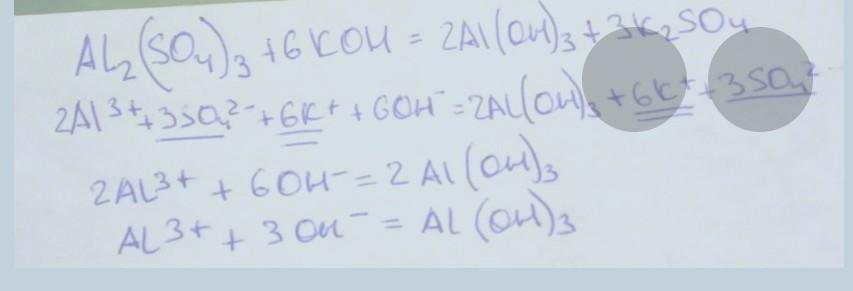 AL₂(SO₄)₃ + 6KOH = 2Al(OH)₃ + 3K₂SO₄
2Al³⁺ + 3SO₄²⁻ + 6K⁺ + 6OH⁻ = 2AL(OH)₃ + 6K⁺ + 3SO₄²
2AL³⁺ + 6OH⁻ = 2Al(OH)₃
AL³⁺ + 3OH⁻ = AL(OH)₃